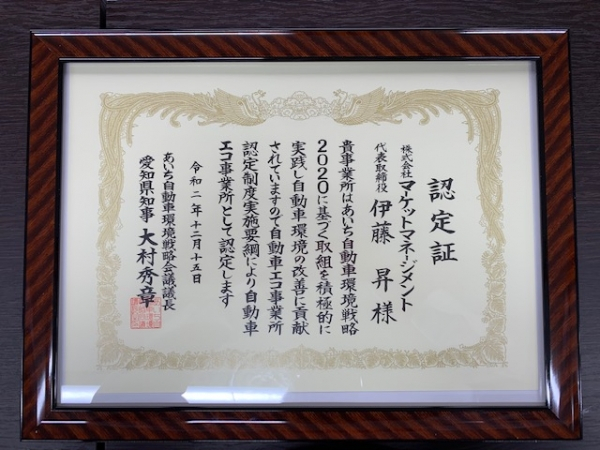 認定証
株式会社 マケットマネージメント
代表取締役 伊藤 昇 様
貴事業所はあいち自動車環境戦略
2020に基づく取組を積極的に
実践し自動車環境の改善に貢献
されていますので自動車エコ事業所
認定制度実施要綱により自動車
エコ事業所として認定します
令和二年十二月十五日
あいち自動車環境戦略会議議長
愛知県知事 大村秀章